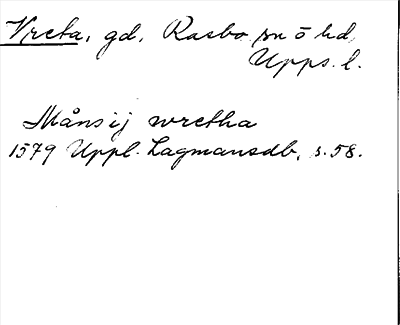 Vreta, gd, Rasbo sn o hd,
Upps. l.
Måns ij wretha
1579 Uppl. Lagmansdb, s. 58.